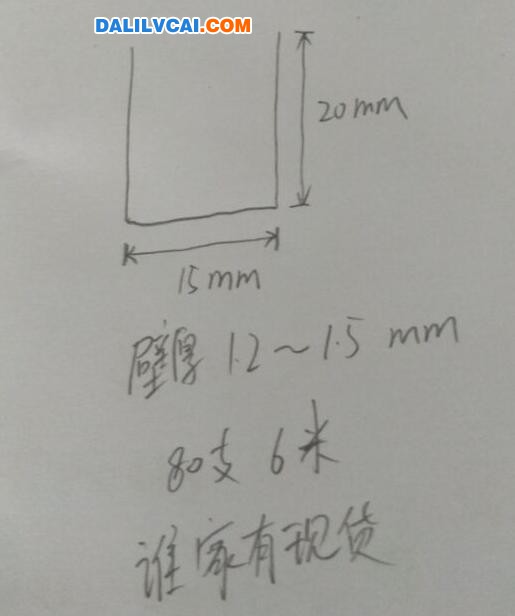 DALILVCAI.COM
20mm
15mm
壁厚 1.2~1.5 mm
80支 6米
谁家有现货